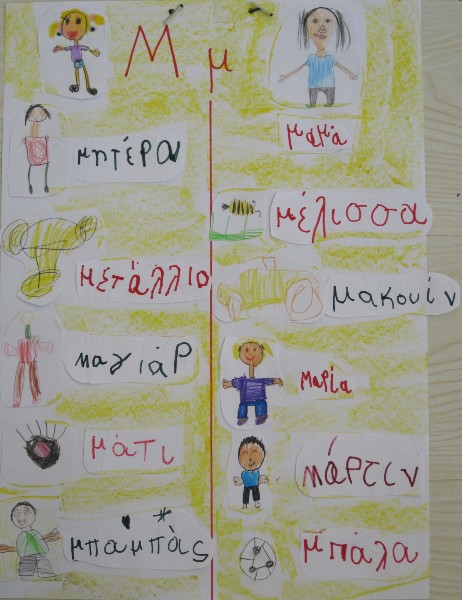 Μ μ
μαμά
μητέρα
μέλισσα
μετάλλιο
μακουίν
μαγιάρ
μαρία
μάτι
μάρτιν
μπαμπάς
μπάλα